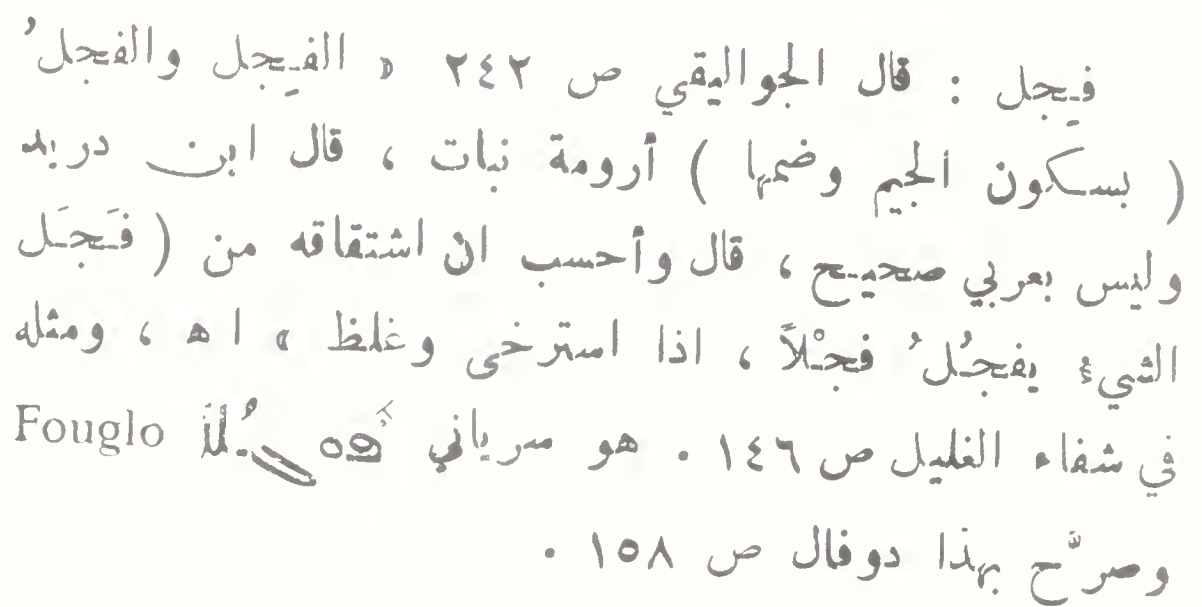 فجل : قال الجواليقي ص ٢٤٢ « الفجل والفجلُ
( بسكون الجيم وضمها ) أرومة نبات ، قال ابن دريد
وليس بعربي صحيح ، قال وأحسب انّ اشتقاقه من ( فَجَل
الشيءُ يفجُلُ فجْلاً ، اذا استرخى وغلظ » ا ه ، ومثله
في شفاء الغليل ص ١٤٦ . هو سرياني ܦܘܓܠܐ Fouglo
وصرّح بهذا دوفال ص ١٥٨ .